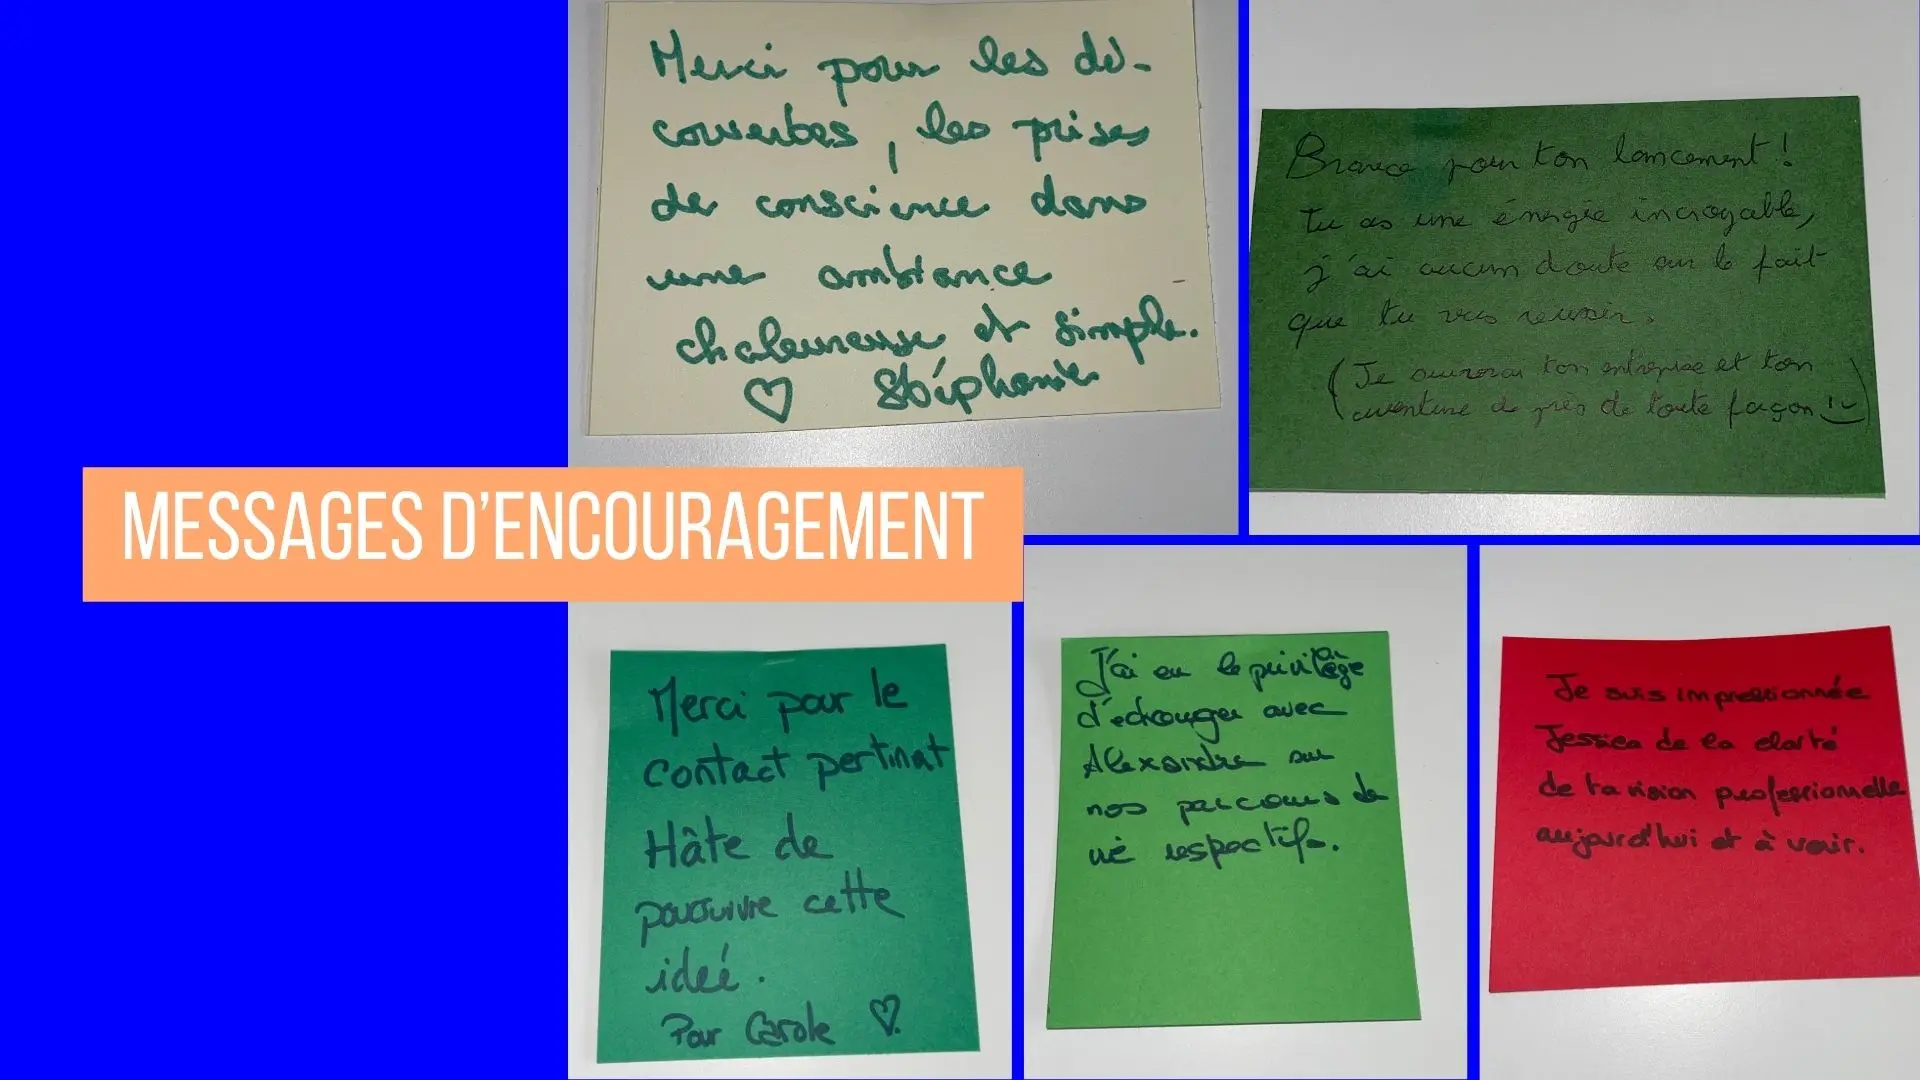 Merci pour les dé-
couvertes, les prises
de conscience dans
une ambiance
chaleureuse et simple.
♡ Stéphanie
Bravo pour ton lancement !
tu as une énergie incroyable,
j'ai aucun doute sur le fait
que tu vas reussir.
(Je suivrai ton entreprise et ton
aventure de près de toute façon !)
MESSAGES D'ENCOURAGEMENT
Merci pour le
contact pertinat
Hâte de
poursuivre cette
ideé.
Pour Carole ♡
J'ai eu le privilège
d'echanger avec
Alexandre sur
nos parcours de
vie respectifs.
Je suis impressionnée
Jessica de la clarté
de ta vision professionnelle
aujourd'hui et à venir.